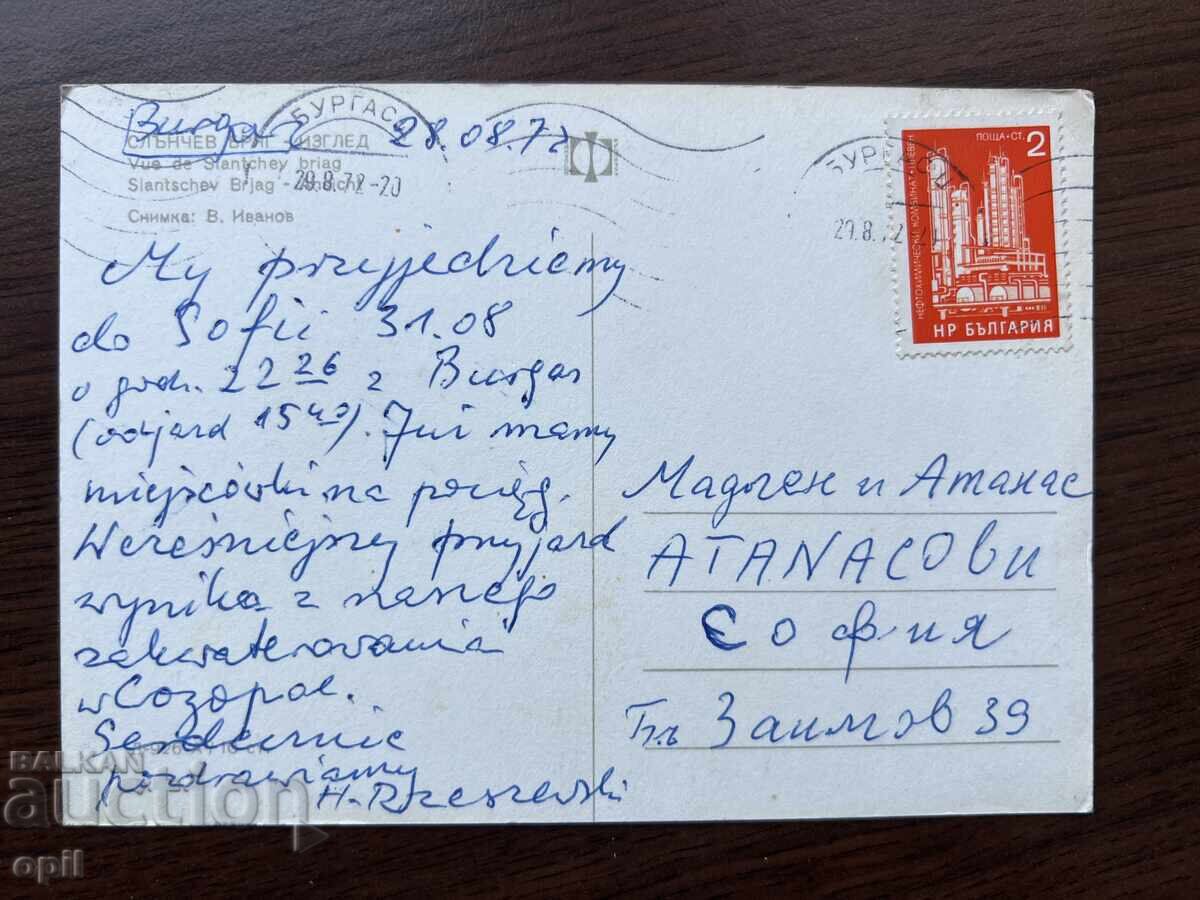 Burgas 28.08.72
БУРГАС
29.8.72-20
СЛЪНЧЕВ БРЯГ - ИЗГЛЕД
Vue de Slantchev briag
Slantschev Brjag - Ansicht
Снимка: В. Иванов
My przyjedziemy
do Sofii 31.08
o godz. 22 26 z Burgas
(odjazd 15 40). Już mamy
miejscówki na pociąg.
Wcześniejszy przyjazd
wynika z naszego
zakwaterowania
w Созопол.
Serdecznie
pozdrawiamy
H. Rzeszewski
БУРГАС
29.8.72
ПОЩА•СТ. 2
НЕФТОХИМИЧЕСКИ КОМБИНАТ - ПЛЕВЕН
НР БЪЛГАРИЯ
и Атанас
АТАNАСОВИ
София
Заимов 39
BALKAN
auction
opil